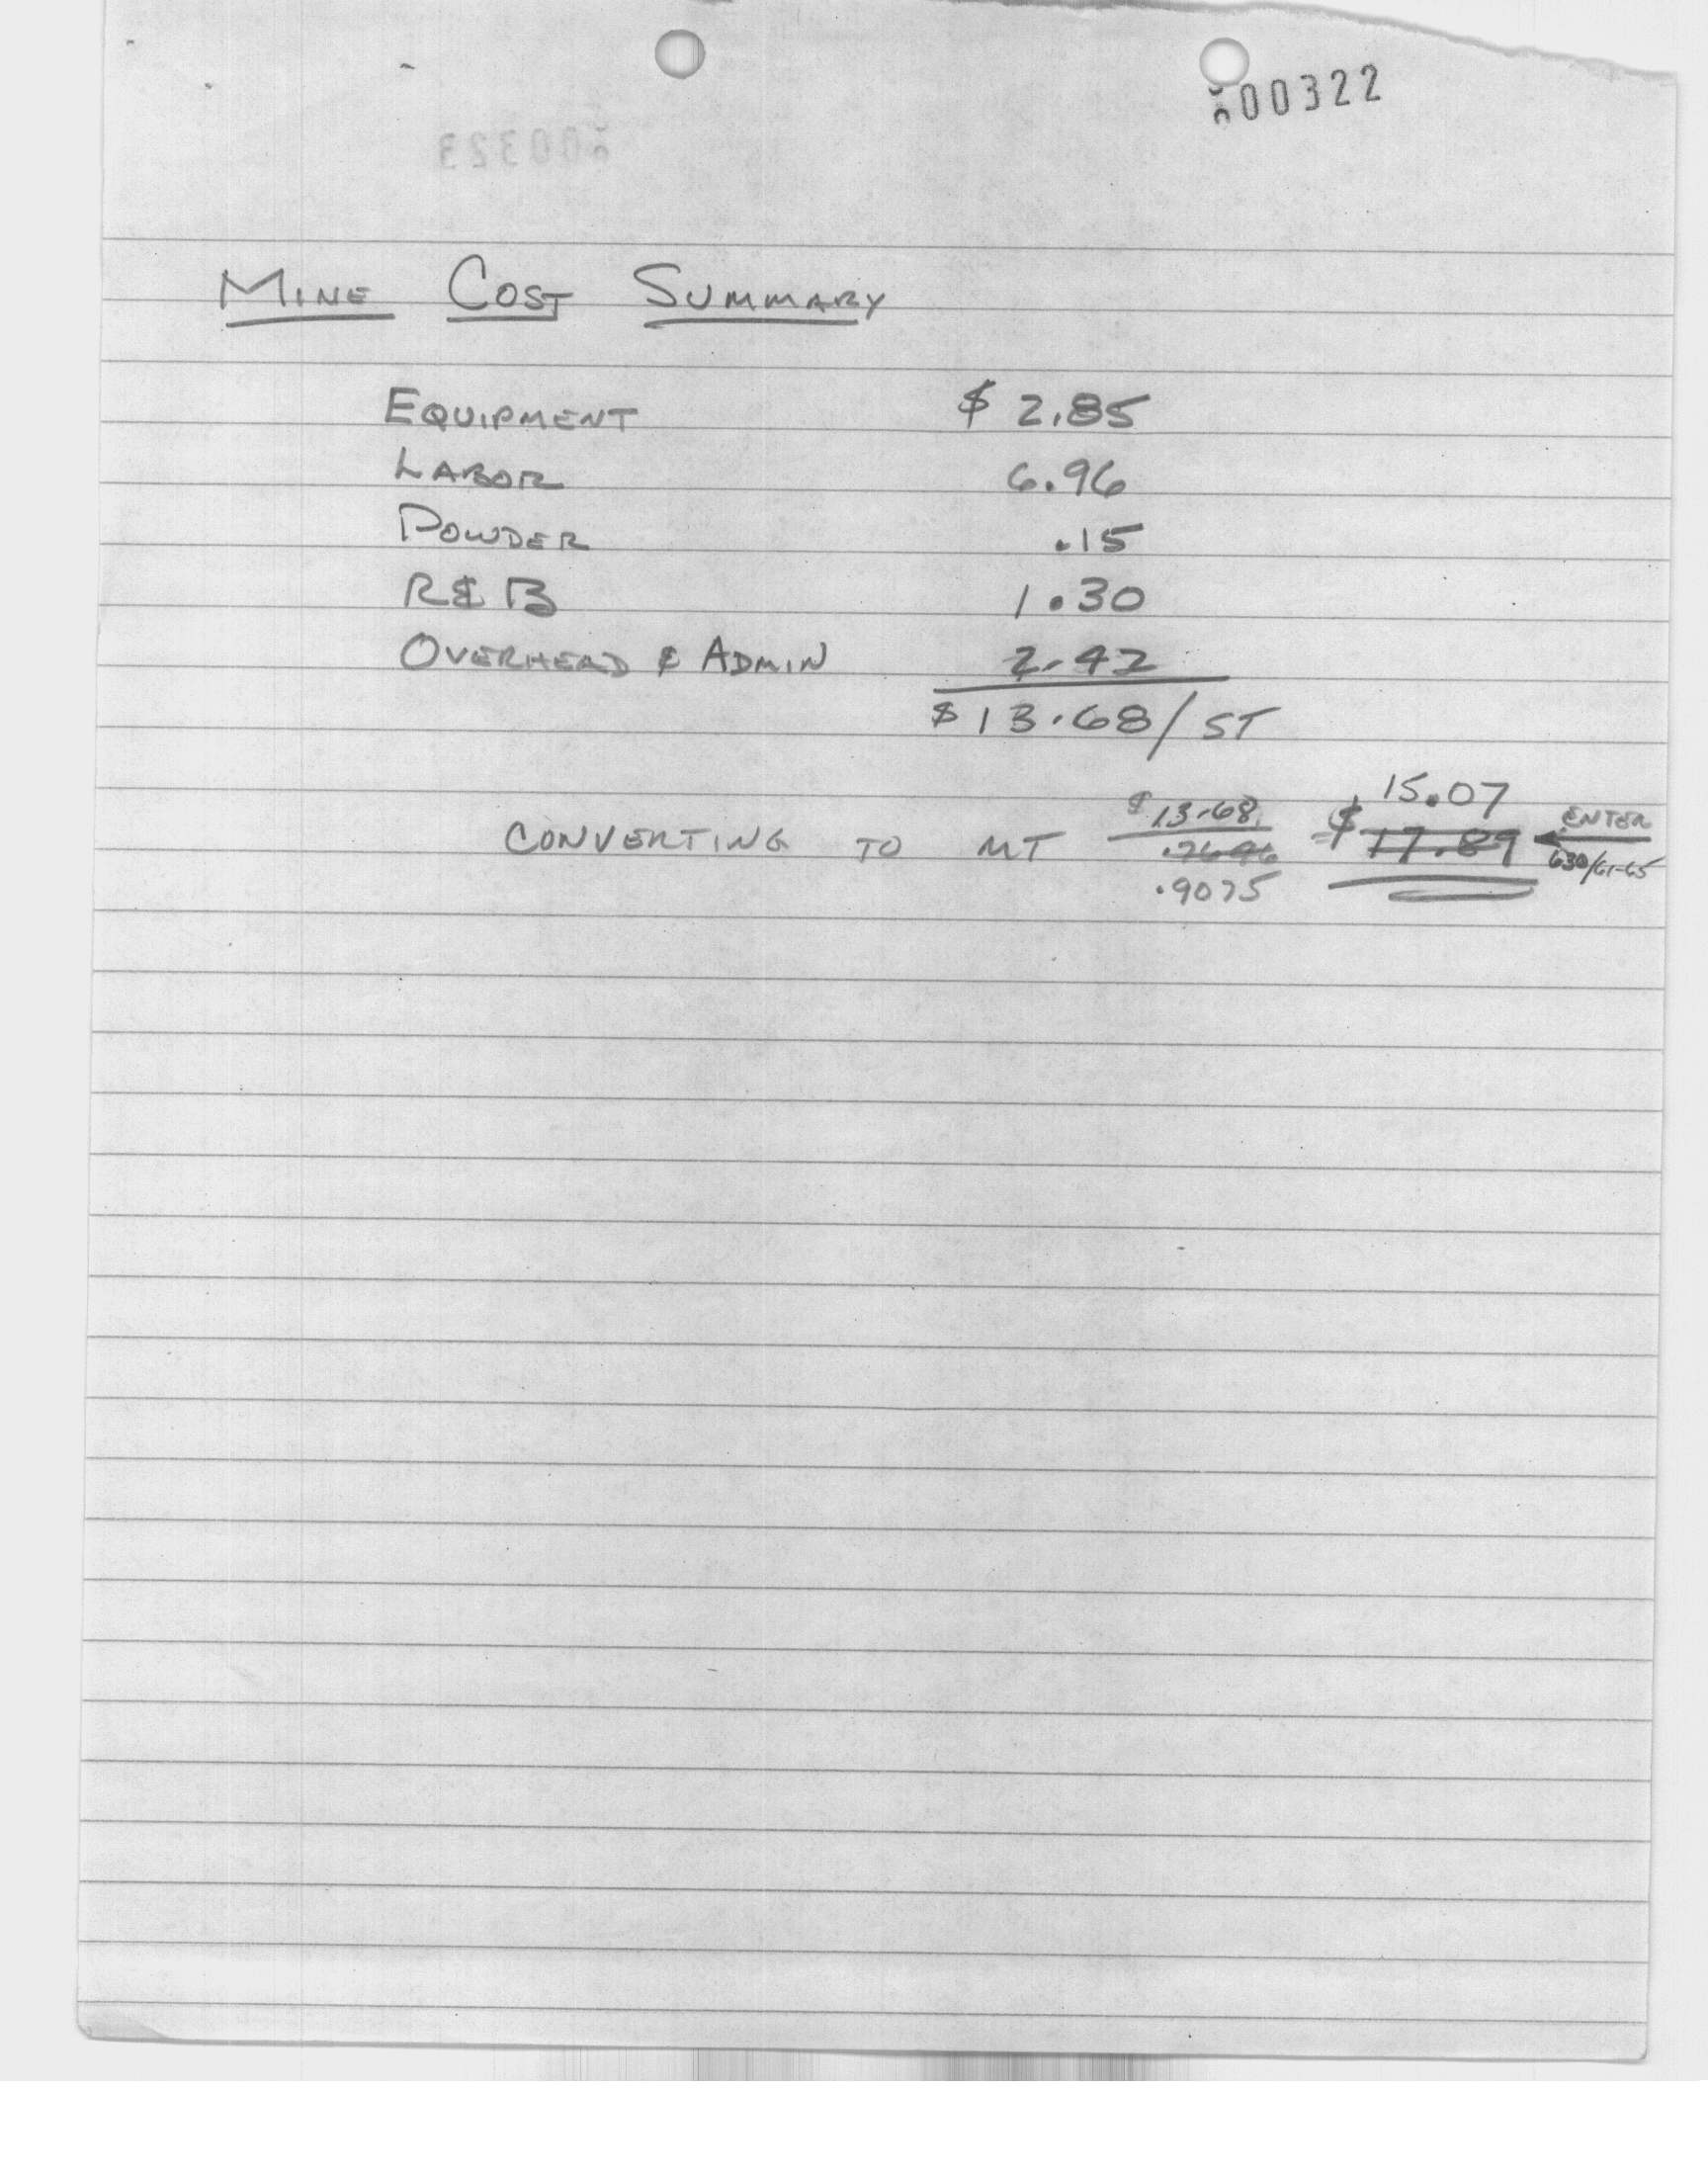 00322
MINE COST SUMMARY
EQUIPMENT $ 2.85
LABOR 6.96
POWDER .15
R & B 1.30
OVERHEAD & ADMIN 2.42
$13.68/ST
CONVERTING TO MT $13.68 = $ 15.07 17.89 ENTER
630/61-65
.9075